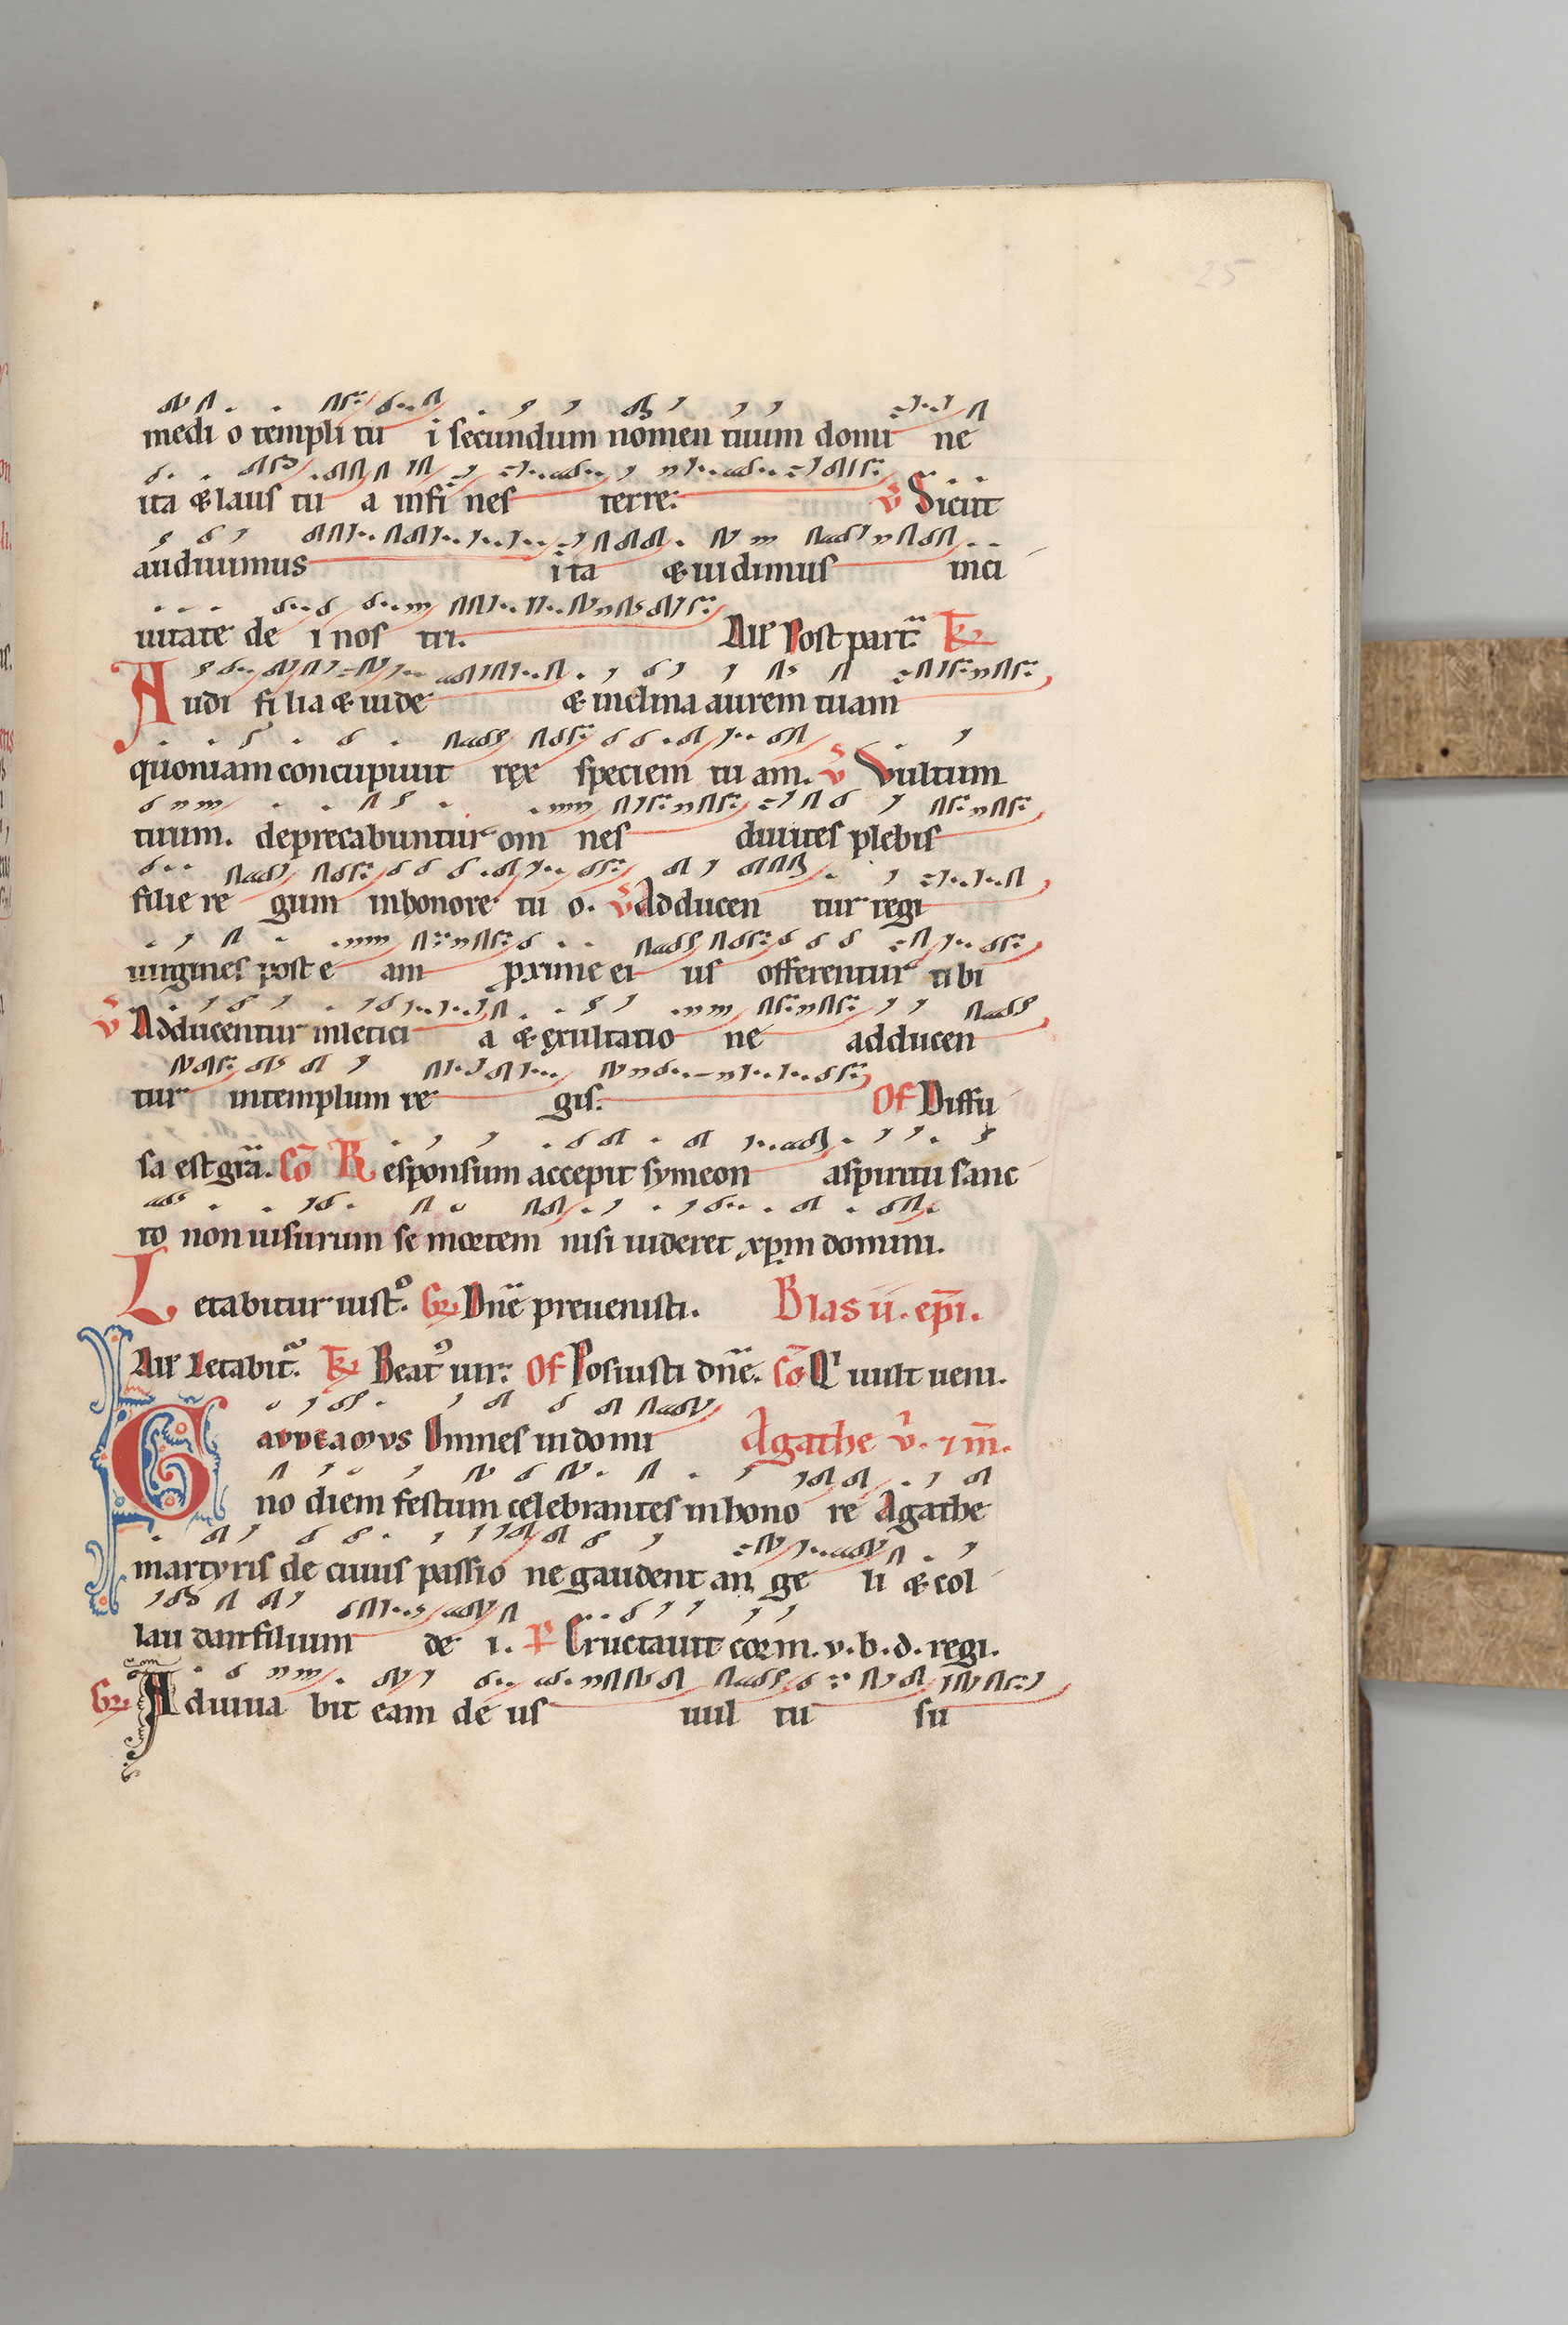 25
medi o templi tu i secundum nomen tuum domi ne
ita & laus tu a in fi nes terre. v Sicut
audiuimus ita & uidimus in ci
uitate de i nos tri. Aɫɫ Post part. Tr
Audi fi lia & uide & inclina aurem tuam
quoniam concupiuit rex speciem tu am. v Vultum
tuum. deprecabuntur om nes diuites plebis
filie re gum in honore tu o. v Adducen tur regi
uirgines post e am proxime ei us offerentur ti bi
v Adducentur in letici a & exultatio ne adducen
tur in templum re gis. Of Diffu
sa est gra. Co Responsum accepit symeon a spiritu sanc
to non uisurum se mortem nisi uideret xpm domini.
Letabitur iust. Gr. Dne preuenisti. Blasii. epi.
Aɫɫ Letabit. Tr Beat uir. Of Posuisti dne. Co Qi uult ueni.
GAVDEAMVS Omnes in domi Agathe v. & m.
no diem festum celebrantes in hono re Agathe
martyris de cuius passio ne gaudent an ge li & col
lau dant filium de i. P Eructauit cor m. v. b. d. regi.
Gr. Adiuua bit eam de us uul tu su